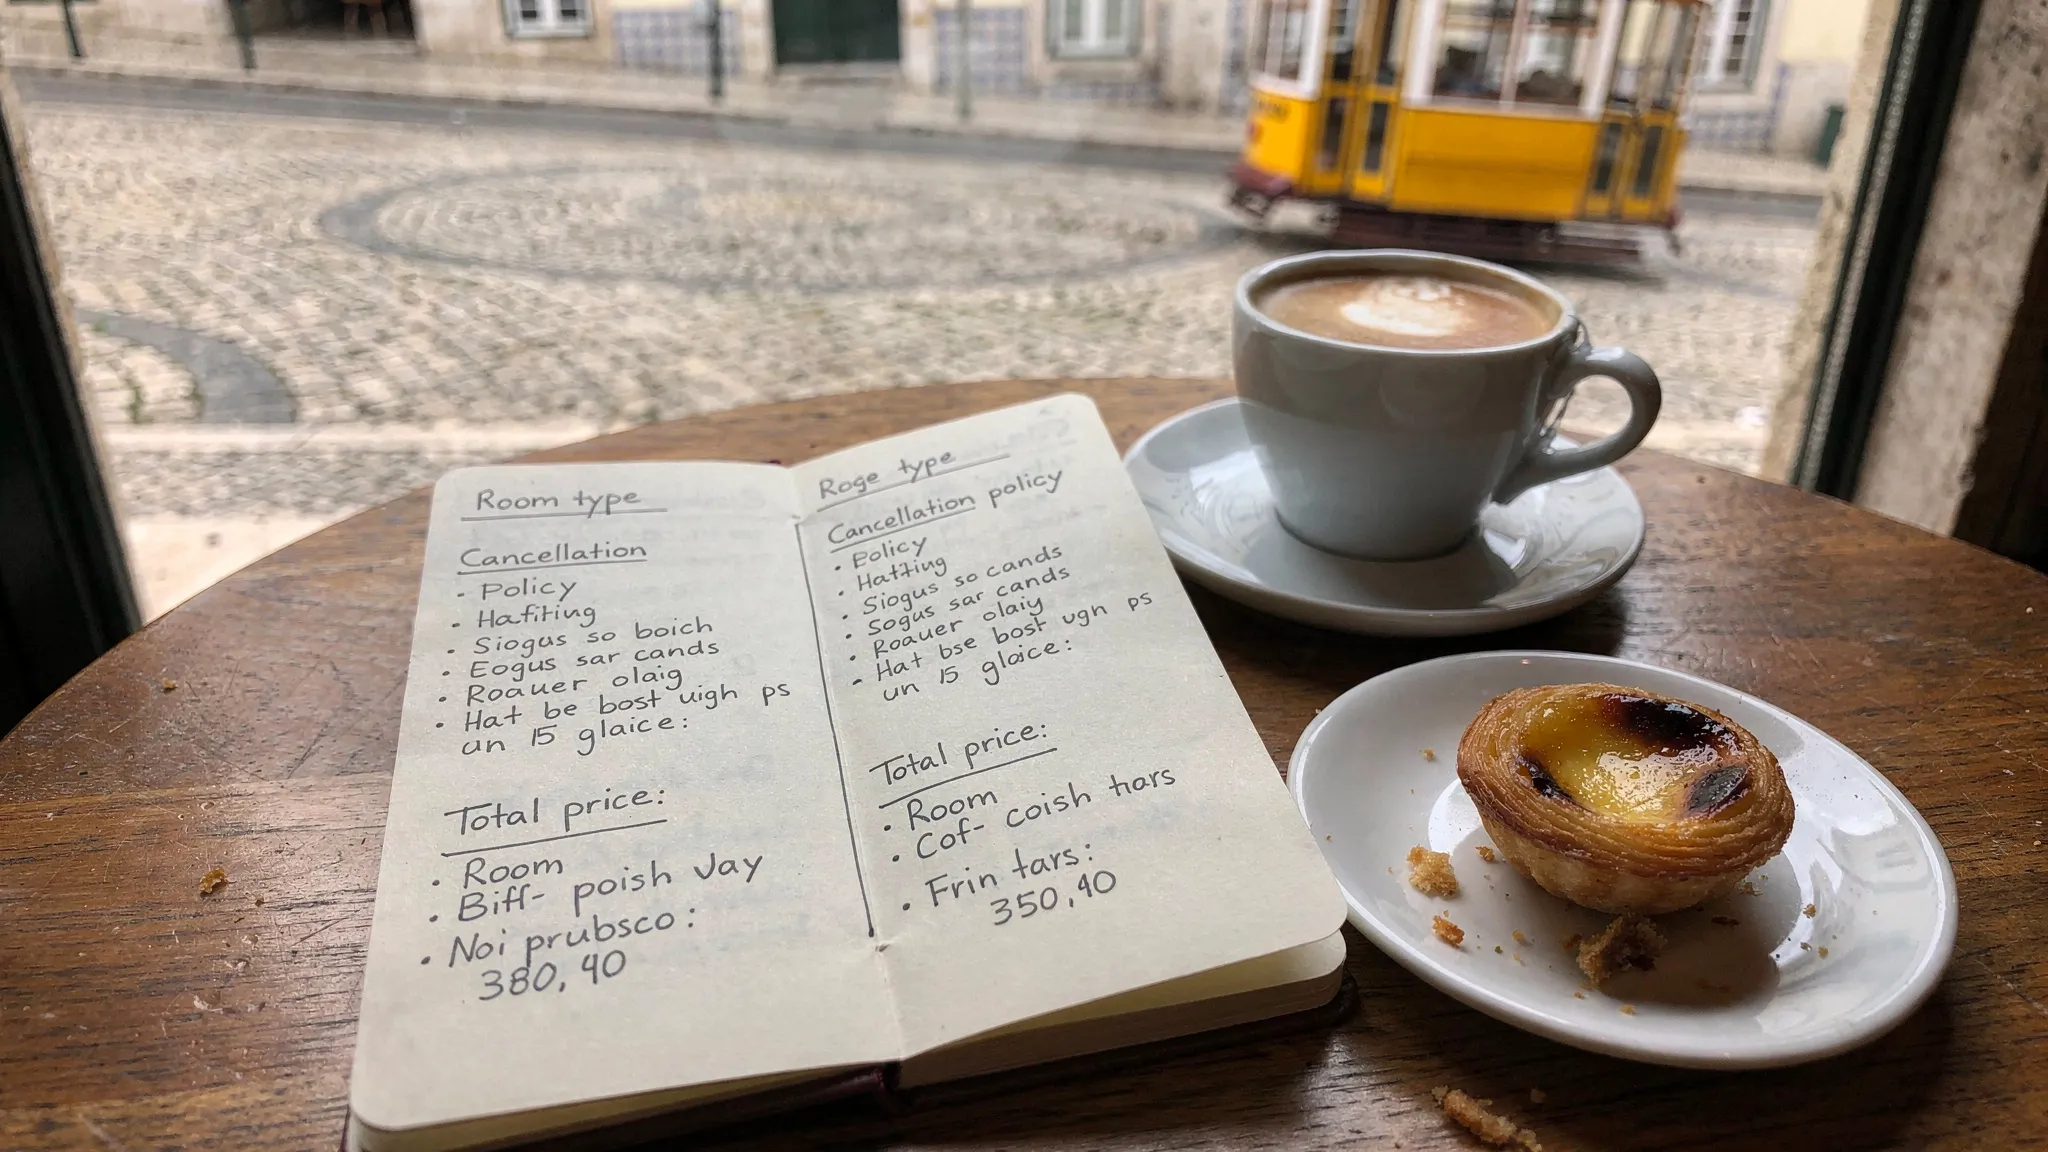 Room type
Cancellation
• Policy
• Hafiting
• Siogus so boich
• Eogus sar cands
• Roauer olaig
• Hat be bost uigh ps
un 15 glaice:
Total price:
• Room
• Biff- poish Jay
• Noi prubsco:
380,40
Roge type
Cancellation policy
• Policy
• Hatting
• Siogus so cands
• Sogus sar cands
• Roauer olaiy
• Hat bse bost ugh ps
un 15 glaice:
Total price:
• Room
• Cof- coish tars
• Frin tars:
350,40